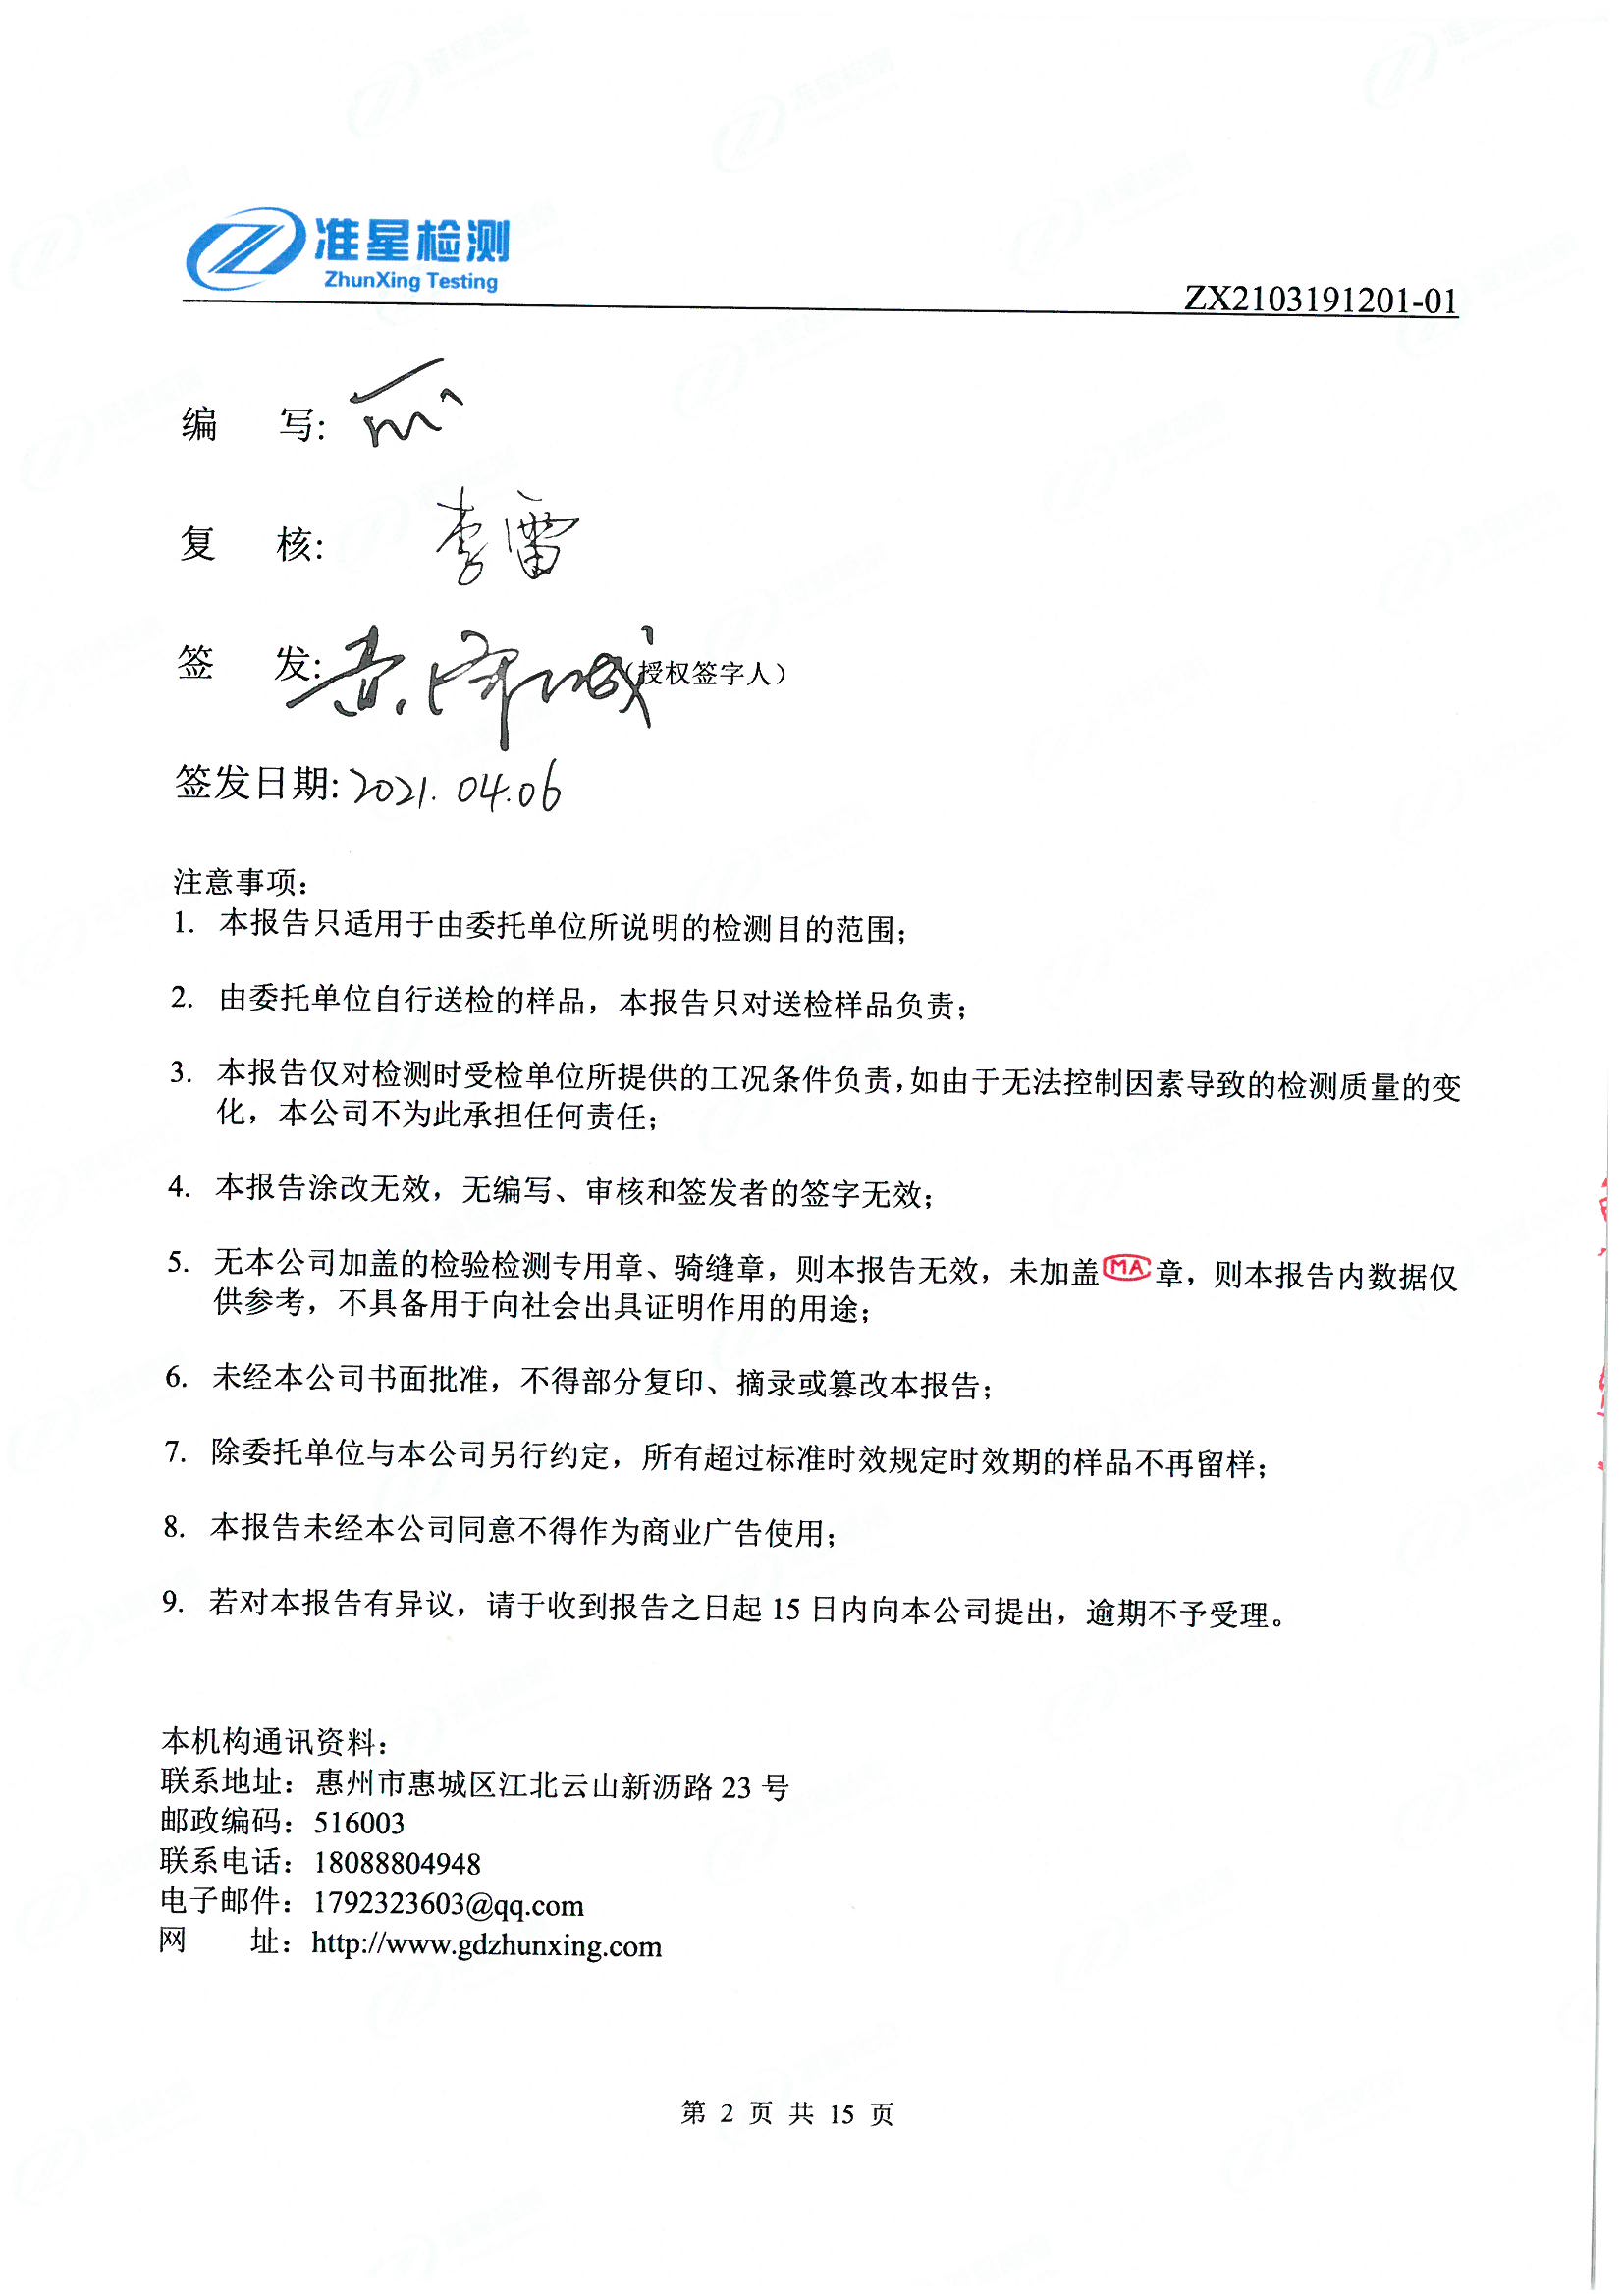 准星检测
ZhunXing Testing
ZX2103191201-01
编 写:
复 核: 李雷
签 发: (授权签字人)
签发日期: 2021.04.06
注意事项：
1. 本报告只适用于由委托单位所说明的检测目的范围；
2. 由委托单位自行送检的样品，本报告只对送检样品负责；
3. 本报告仅对检测时受检单位所提供的工况条件负责，如由于无法控制因素导致的检测质量的变
化，本公司不为此承担任何责任；
4. 本报告涂改无效，无编写、审核和签发者的签字无效；
5. 无本公司加盖的检验检测专用章、骑缝章，则本报告无效，未加盖MA章，则本报告内数据仅
供参考，不具备用于向社会出具证明作用的用途；
6. 未经本公司书面批准，不得部分复印、摘录或篡改本报告；
7. 除委托单位与本公司另行约定，所有超过标准时效规定时效期的样品不再留样；
8. 本报告未经本公司同意不得作为商业广告使用；
9. 若对本报告有异议，请于收到报告之日起 15 日内向本公司提出，逾期不予受理。
本机构通讯资料：
联系地址：惠州市惠城区江北云山新沥路 23 号
邮政编码：516003
联系电话：18088804948
电子邮件：1792323603@qq.com
网 址：http://www.gdzhunxing.com
第 2 页 共 15 页